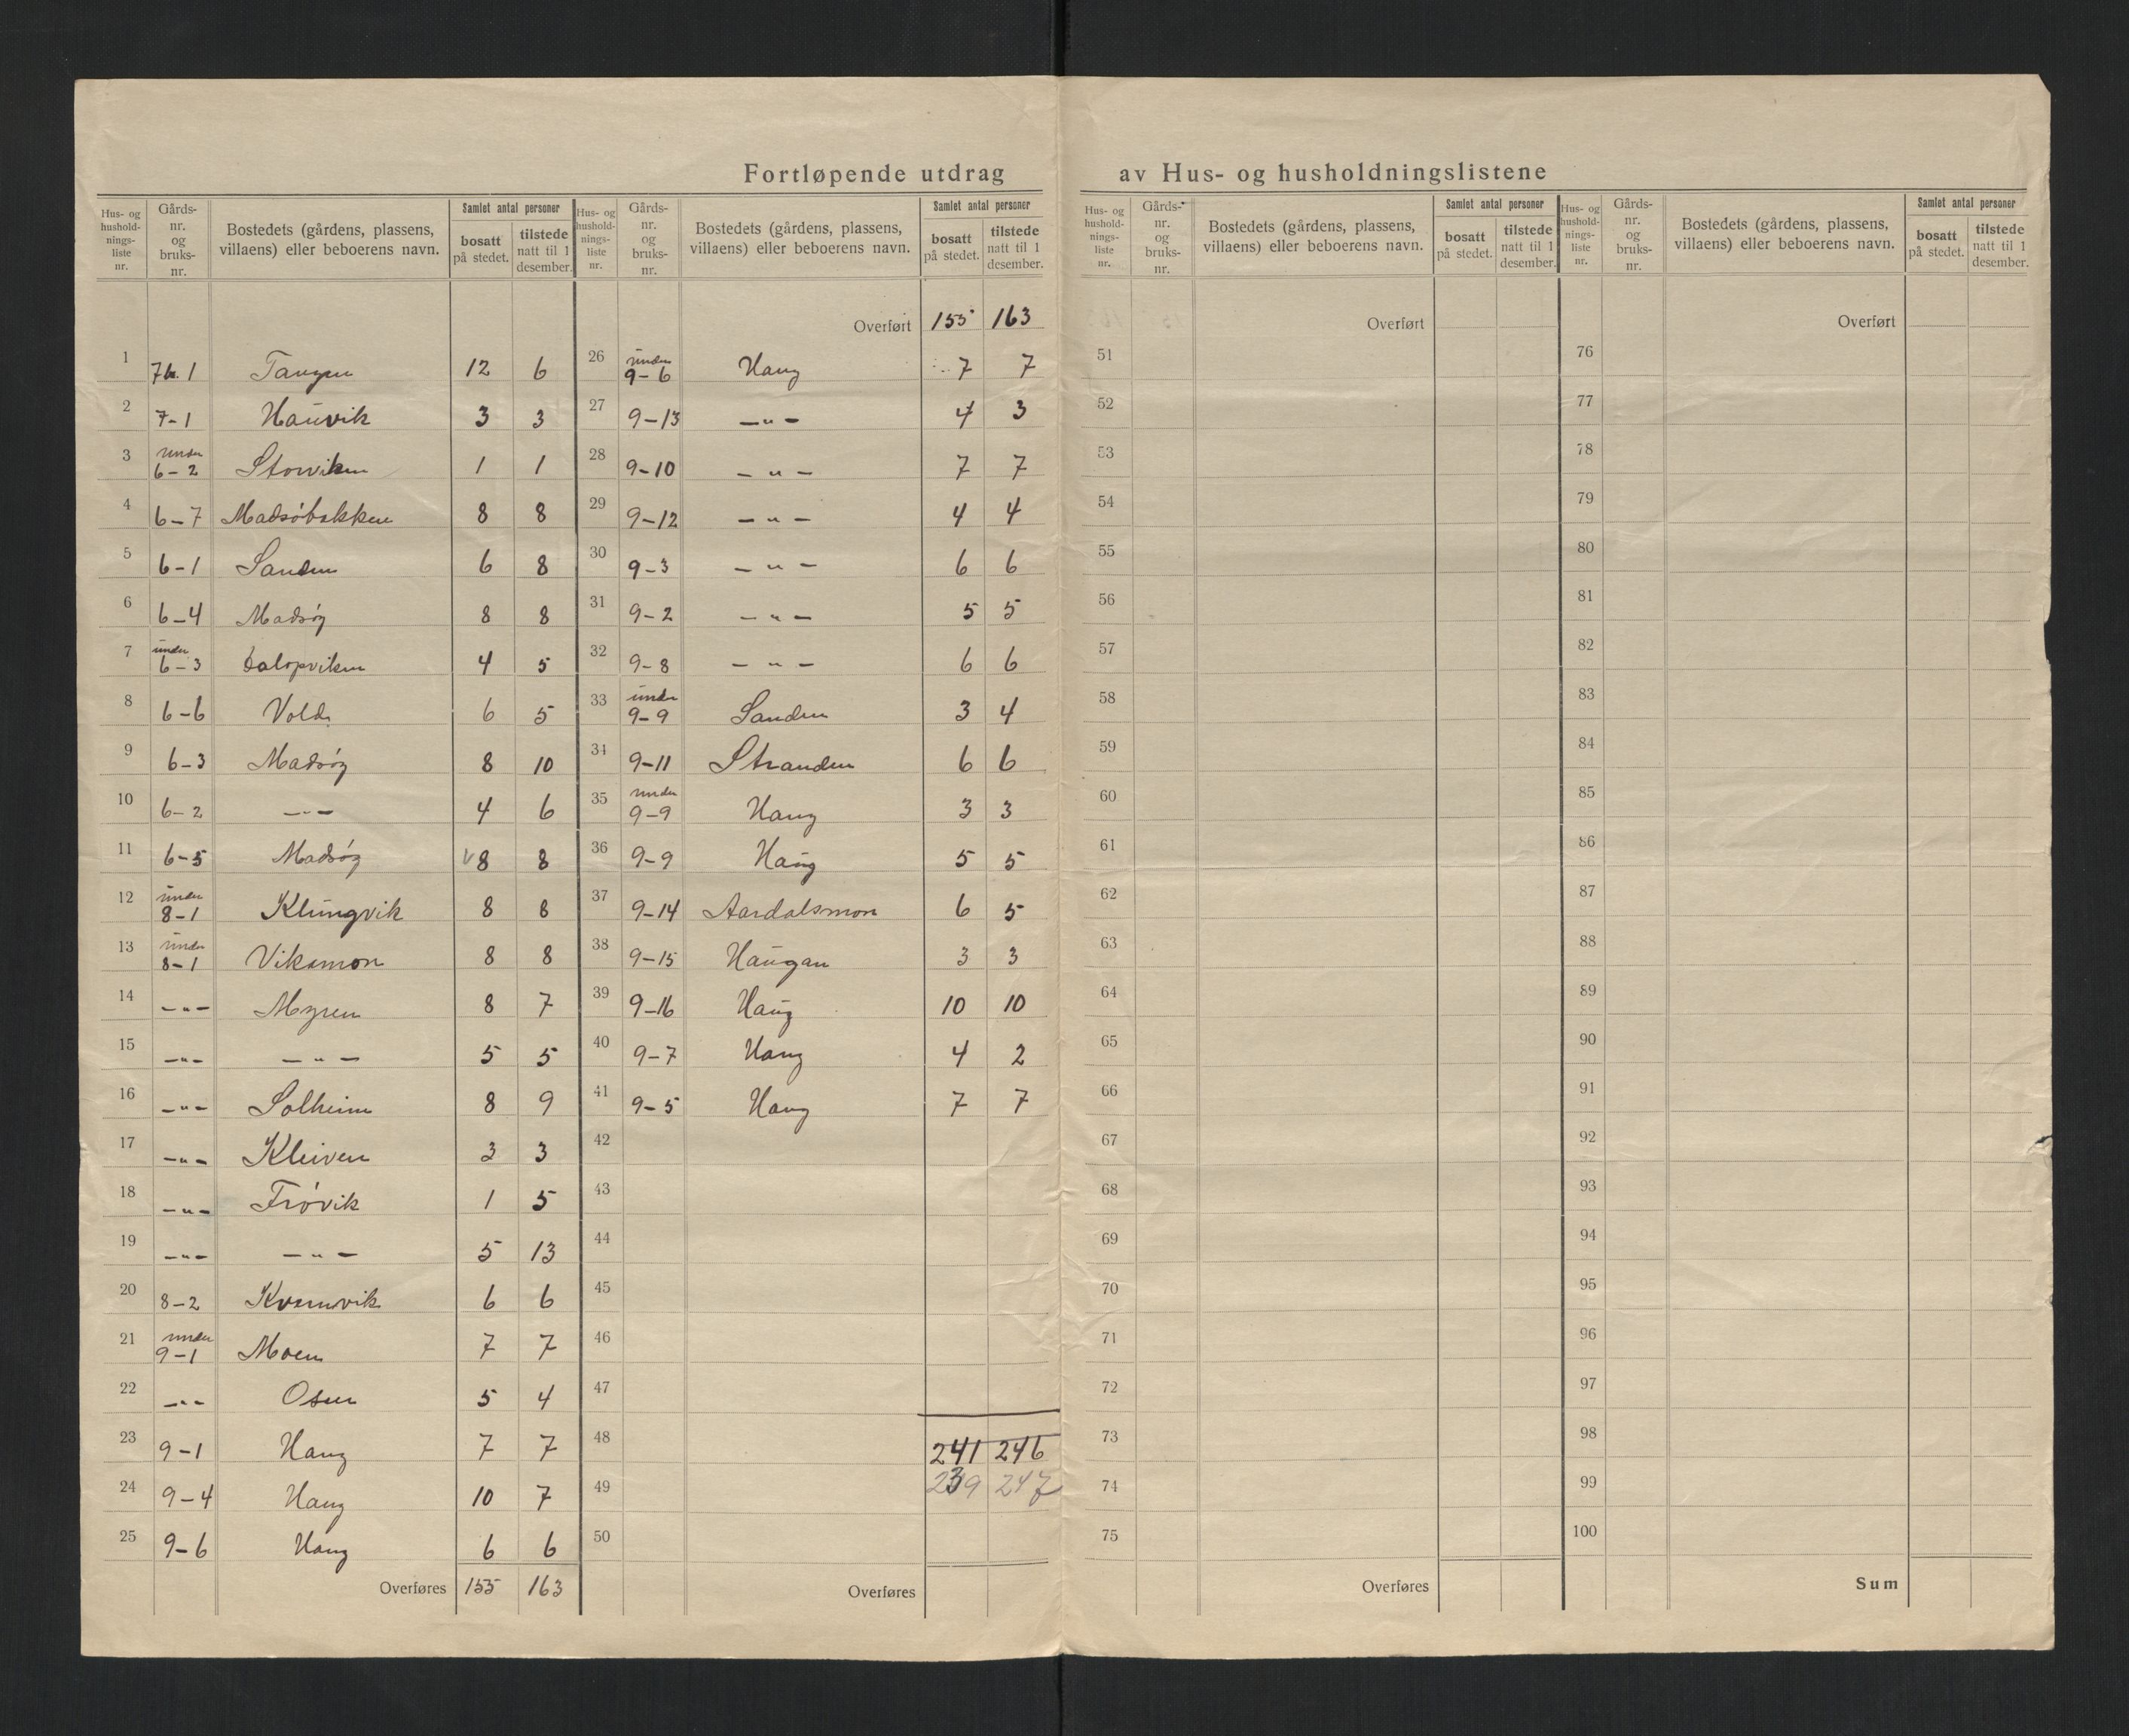 Fortløpende utdrag av Hus- og husholdningslistene
Hus- og hushold-nings-liste nr. Gårds-nr. og bruks-nr. Bostedets (gårdens, plassens, villaens) eller beboerens navn. Samlet antal personer bosatt på stedet. tilstede natt til 1 desember.
1 7 1 Tangen 12 6
2 7-1 Hauvik 3 3
3 under 6-2 Storviken 1 1
4 6-7 Madsöbakken 8 8
5 6-1 Sanden 6 8
6 6-4 Madsöy 8 8
7 under 6-3 4 5
8 6-6 Vold 6 5
9 6-3 Madsöy 8 10
10 6-2 -"- 4 6
11 6-5 Madsöy 8 8
12 under 8-1 Klungvik 8 8
13 under 8-1 Viksmon 8 8
14 -"- Myren 8 7
15 -"- -"- 5 5
16 -"- Solheim 8 9
17 -"- Kleiven 3 3
18 -"- Frövik 1 5
19 -"- -"- 5 13
20 8-2 Kvernvik 6 6
21 under 9-1 Moen 7 7
22 -"- Osen 5 4
23 9-1 Haug 7 7
24 9-4 Haug 10 7
25 9-6 Haug 6 6
Overføres 155 163
Hus- og hushold-nings-liste nr. Gårds-nr. og bruks-nr. Bostedets (gårdens, plassens, villaens) eller beboerens navn. Samlet antal personer bosatt på stedet. tilstede natt til 1 desember.
Overført 155 163
26 under 9-6 Haug 7 7
27 9-13 -"- 4 3
28 9-10 -"- 7 7
29 9-12 -"- 4 4
30 9-3 -"- 6 6
31 9-2 -"- 5 5
32 9-8 -"- 6 6
33 under 9-9 Sanden 3 4
34 9-11 Stranden 6 6
35 under 9-9 Haug 3 3
36 9-9 Haug 5 5
37 9-14 Aardalsmon 6 5
38 9-15 Haugan 3 3
39 9-16 Haug 10 10
40 9-7 Haug 4 2
41 9-5 Haug 7 7
42
43
44
45
46
47
48 241 246
49 239 247
50
Overføres
Hus- og hushold-nings-liste nr. Gårds-nr. og bruks-nr. Bostedets (gårdens, plassens, villaens) eller beboerens navn. Samlet antal personer bosatt på stedet. tilstede natt til 1 desember.
Overført
51
52
53
54
55
56
57
58
59
60
61
62
63
64
65
66
67
68
69
70
71
72
73
74
75
Overføres
Hus- og hushold-nings-liste nr. Gårds-nr. og bruks-nr. Bostedets (gårdens, plassens, villaens) eller beboerens navn. Samlet antal personer bosatt på stedet. tilstede natt til 1 desember.
Overført
76
77
78
79
80
81
82
83
84
85
86
87
88
89
90
91
92
93
94
95
96
97
98
99
100
Sum